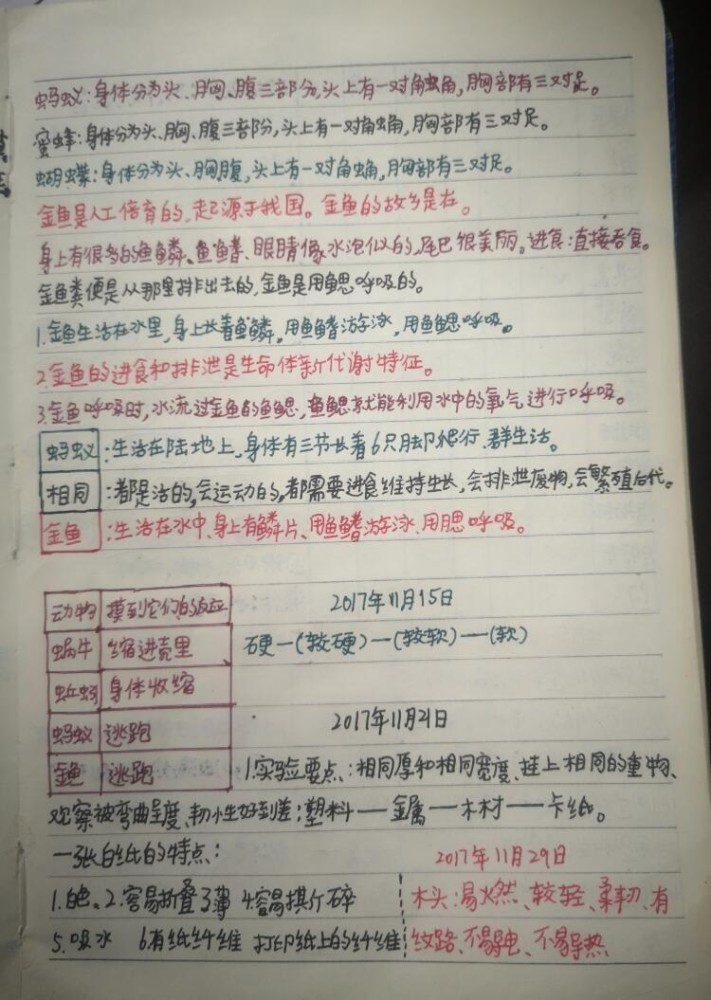 蚂蚁:身体分为头、胸、腹三部分,头上有一对角虫角,胸部有三对足。
蜜蜂:身体分为头、胸、腹三部分,头上有一对角虫角,胸部有三对足。
蝴蝶:身体分为头、胸腹,头上有一对角虫角,胸部有三对足。
金鱼是人工培育的,起源于我国。金鱼的故乡是在。
身上有很多的鱼鳞、鱼鳍、眼睛像水泡似的,尾巴很美丽。进食:直接吞食。
金鱼粪便是从那里排出去的,金鱼是用鱼鳃呼吸的。
1.金鱼生活在水里,身上长着鱼鳞,用鱼鳍游泳,用鱼鳃呼吸。
2.金鱼的进食和排泄是生命体新代谢特征。
3.金鱼呼吸时,水流过金鱼的鱼鳃,鱼鳃就能利用水中的氧气进行呼吸。
蚂蚁:生活在陆地上,身体有三节长着6只脚爬行、群生活。
相同:都是活的,会运动的,都需要进食维持生长,会排泄废物,会繁殖后代。
金鱼:生活在水中、身上有鳞片、用鱼鳍游泳、用腮呼吸。
动物 摸到它们的反应 2017年11月15日
蜗牛 缩进壳里 硬—(较硬)—(较软)—(软)
蚯蚓 身体收缩
蚂蚁 逃跑 2017年11月21日
金鱼 逃跑 1.实验要点:相同厚和相同宽度、挂上相同的重物、
观察被弯曲呈度、韧性好到差:塑料—金属—木材—卡纸。
一张白纸的特点: 2017年11月29日
1.白色。2.容易折叠 3薄 4.容易撕碎 木头:易火然、较轻、柔韧、有
5.吸水 6.有纸纤维 打印纸上的纤维 纹路、不易导电、不易导热